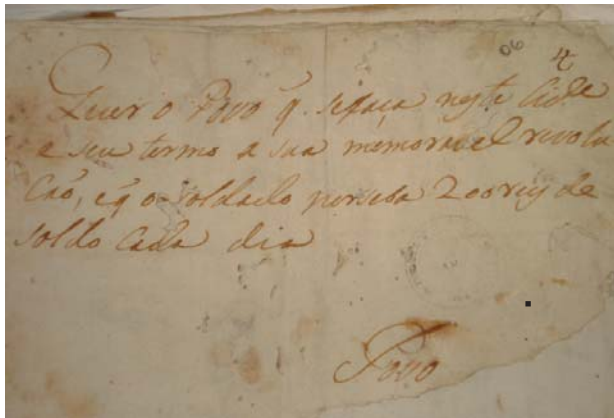 06 4
Quer o Povo q̃. sefaça nesta Cide
e seu termo a sua memoravel revolu
Caõ, e q̃ o soldado perseba 200 reis de
soldo Cada dia
Povo